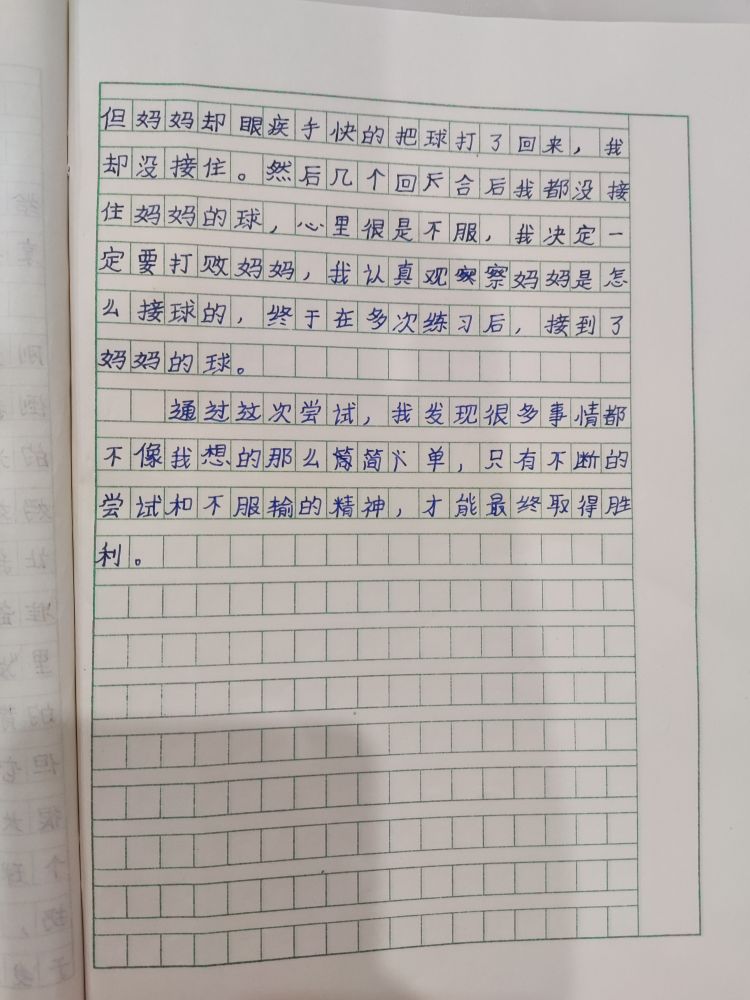 但妈妈却眼疾手快的把球打了回来，我
却没接住。然后几个回合后我都没接
住妈妈的球，心里很是不服，我决定一
定要打败妈妈，我认真观察妈妈是怎
么接球的，终于在多次练习后，接到了
妈妈的球。
通过这次尝试，我发现很多事情都
不像我想的那么简单，只有不断的
尝试和不服输的精神，才能最终取得胜
利。